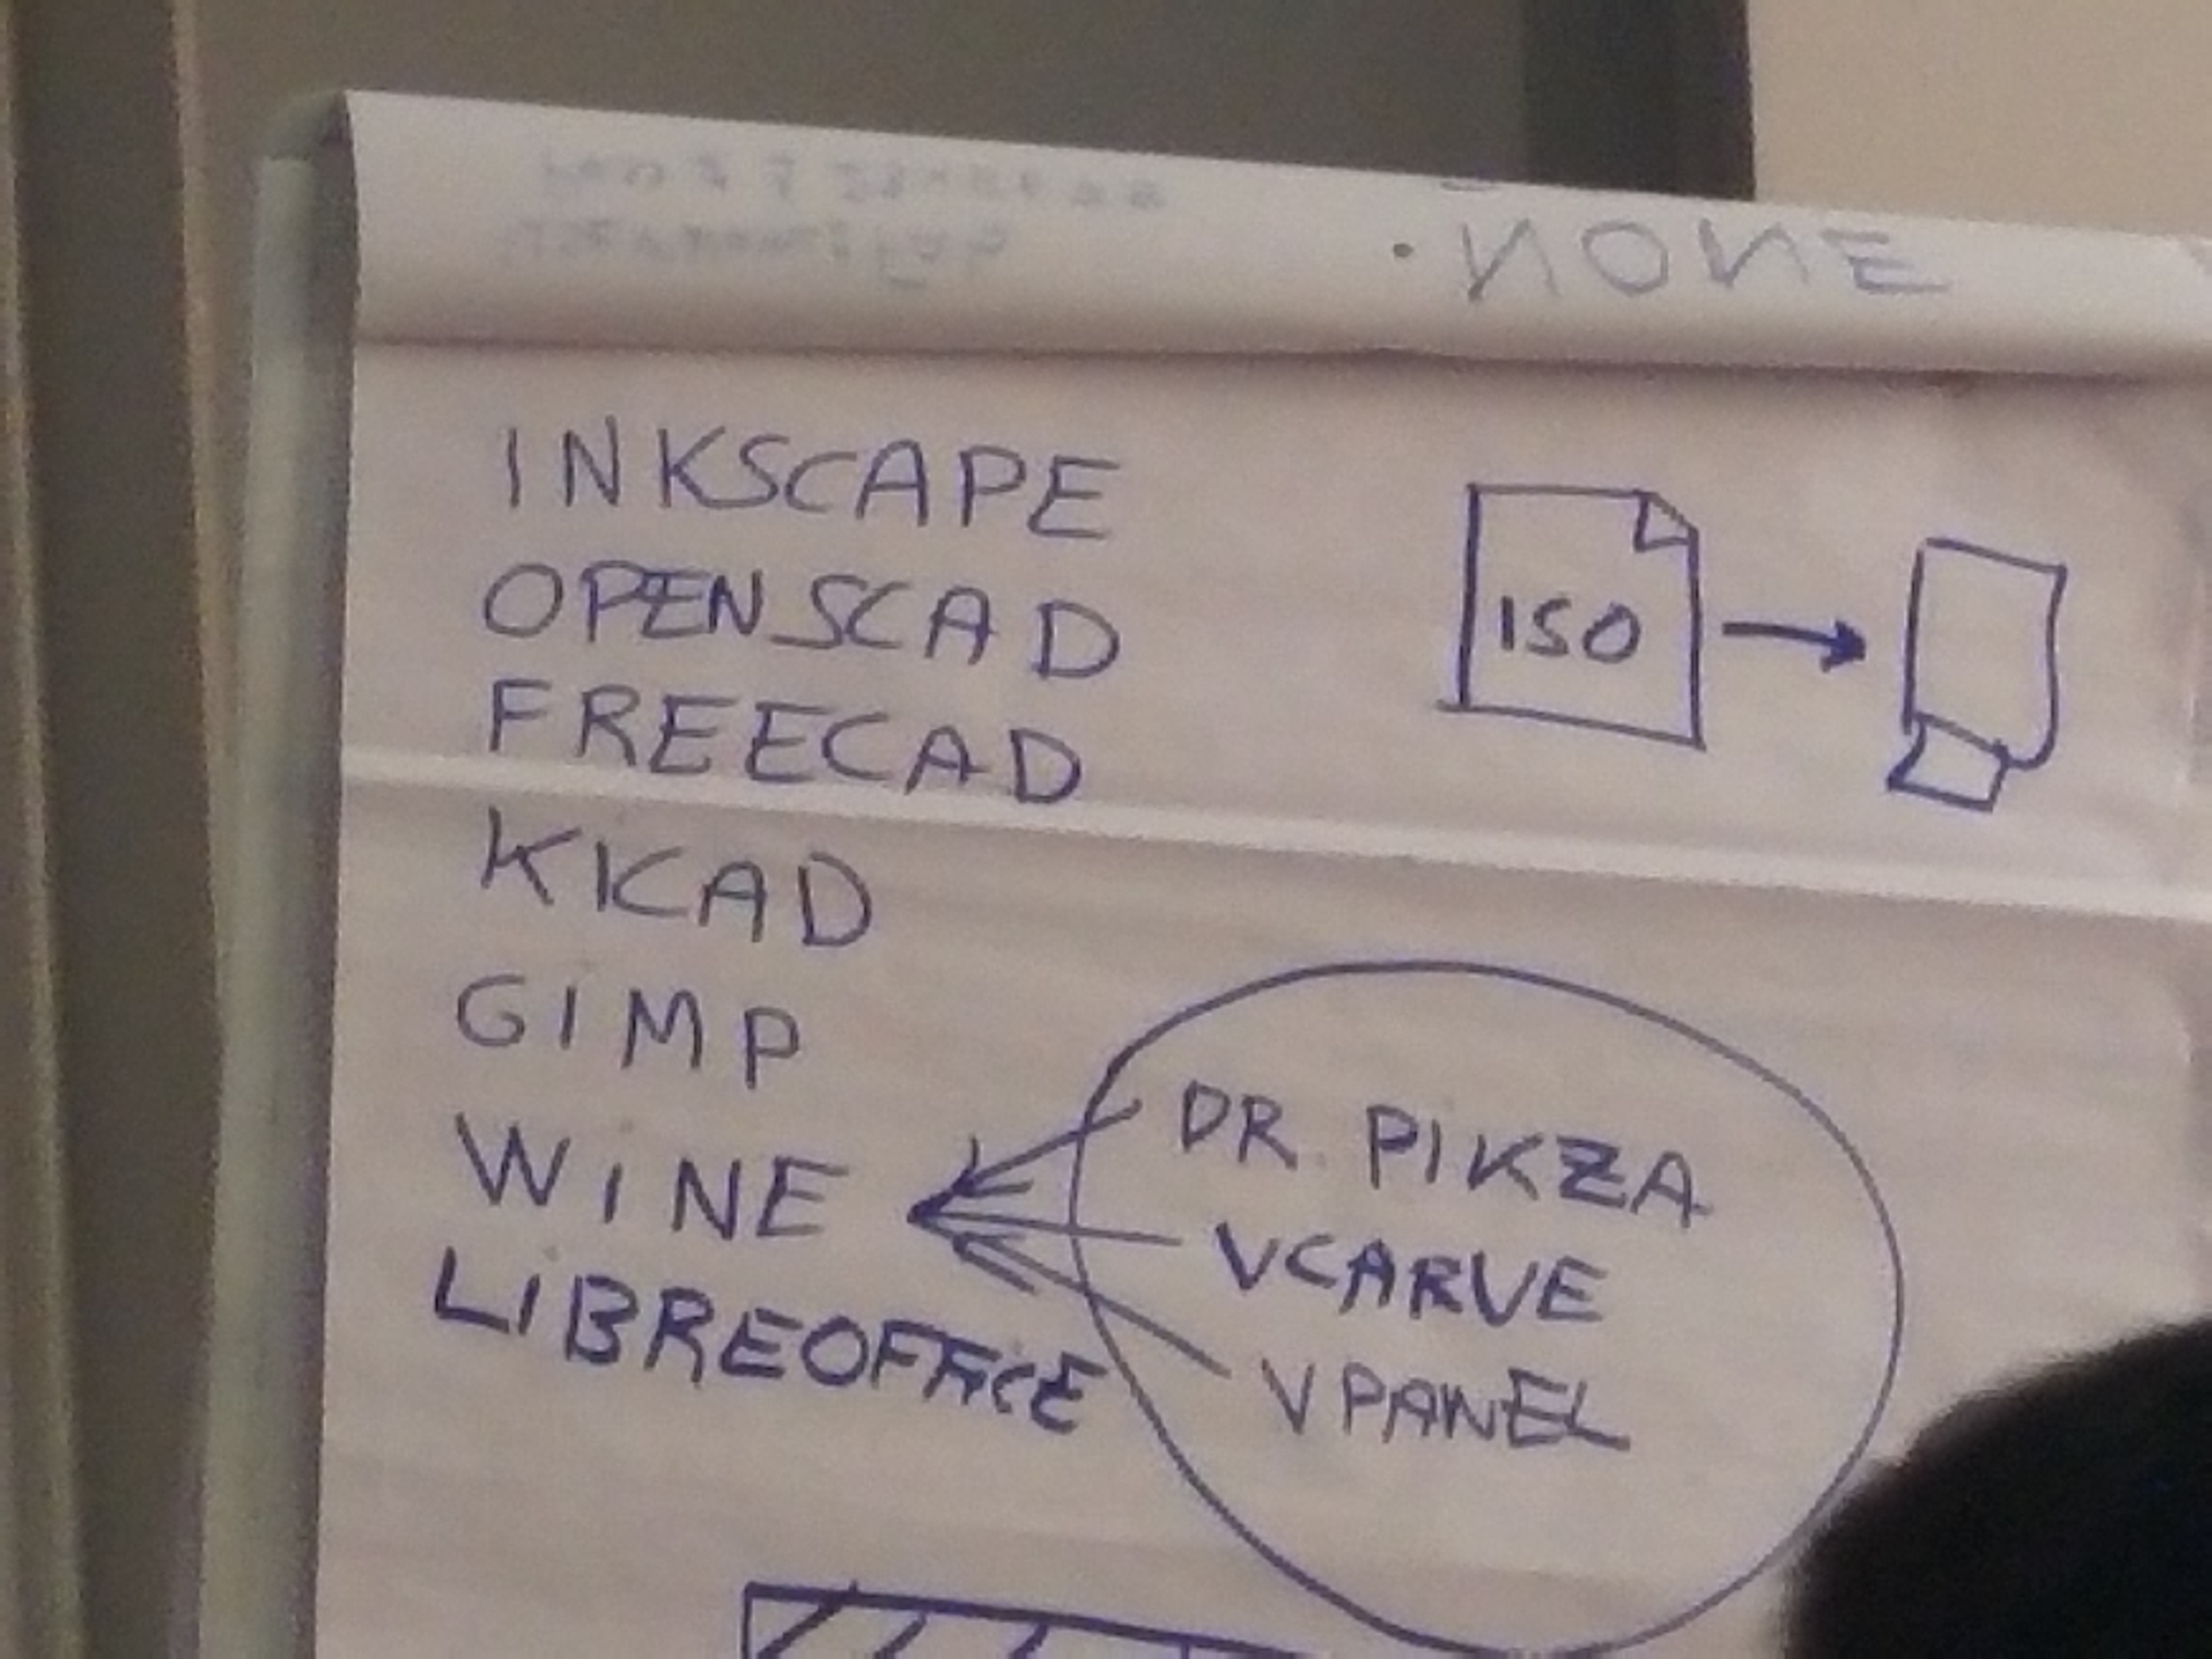 NONE
INKSCAPE
OPENSCAD
FREECAD
KKCAD
GIMP
WINE
LIBREOFFICE
ISO
DR. PIKZA
VCARVE
VPANEL